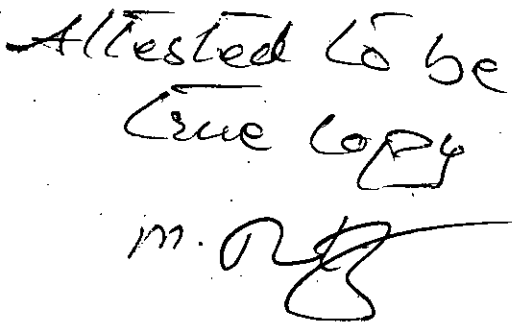 Attested to be
true copy
M.